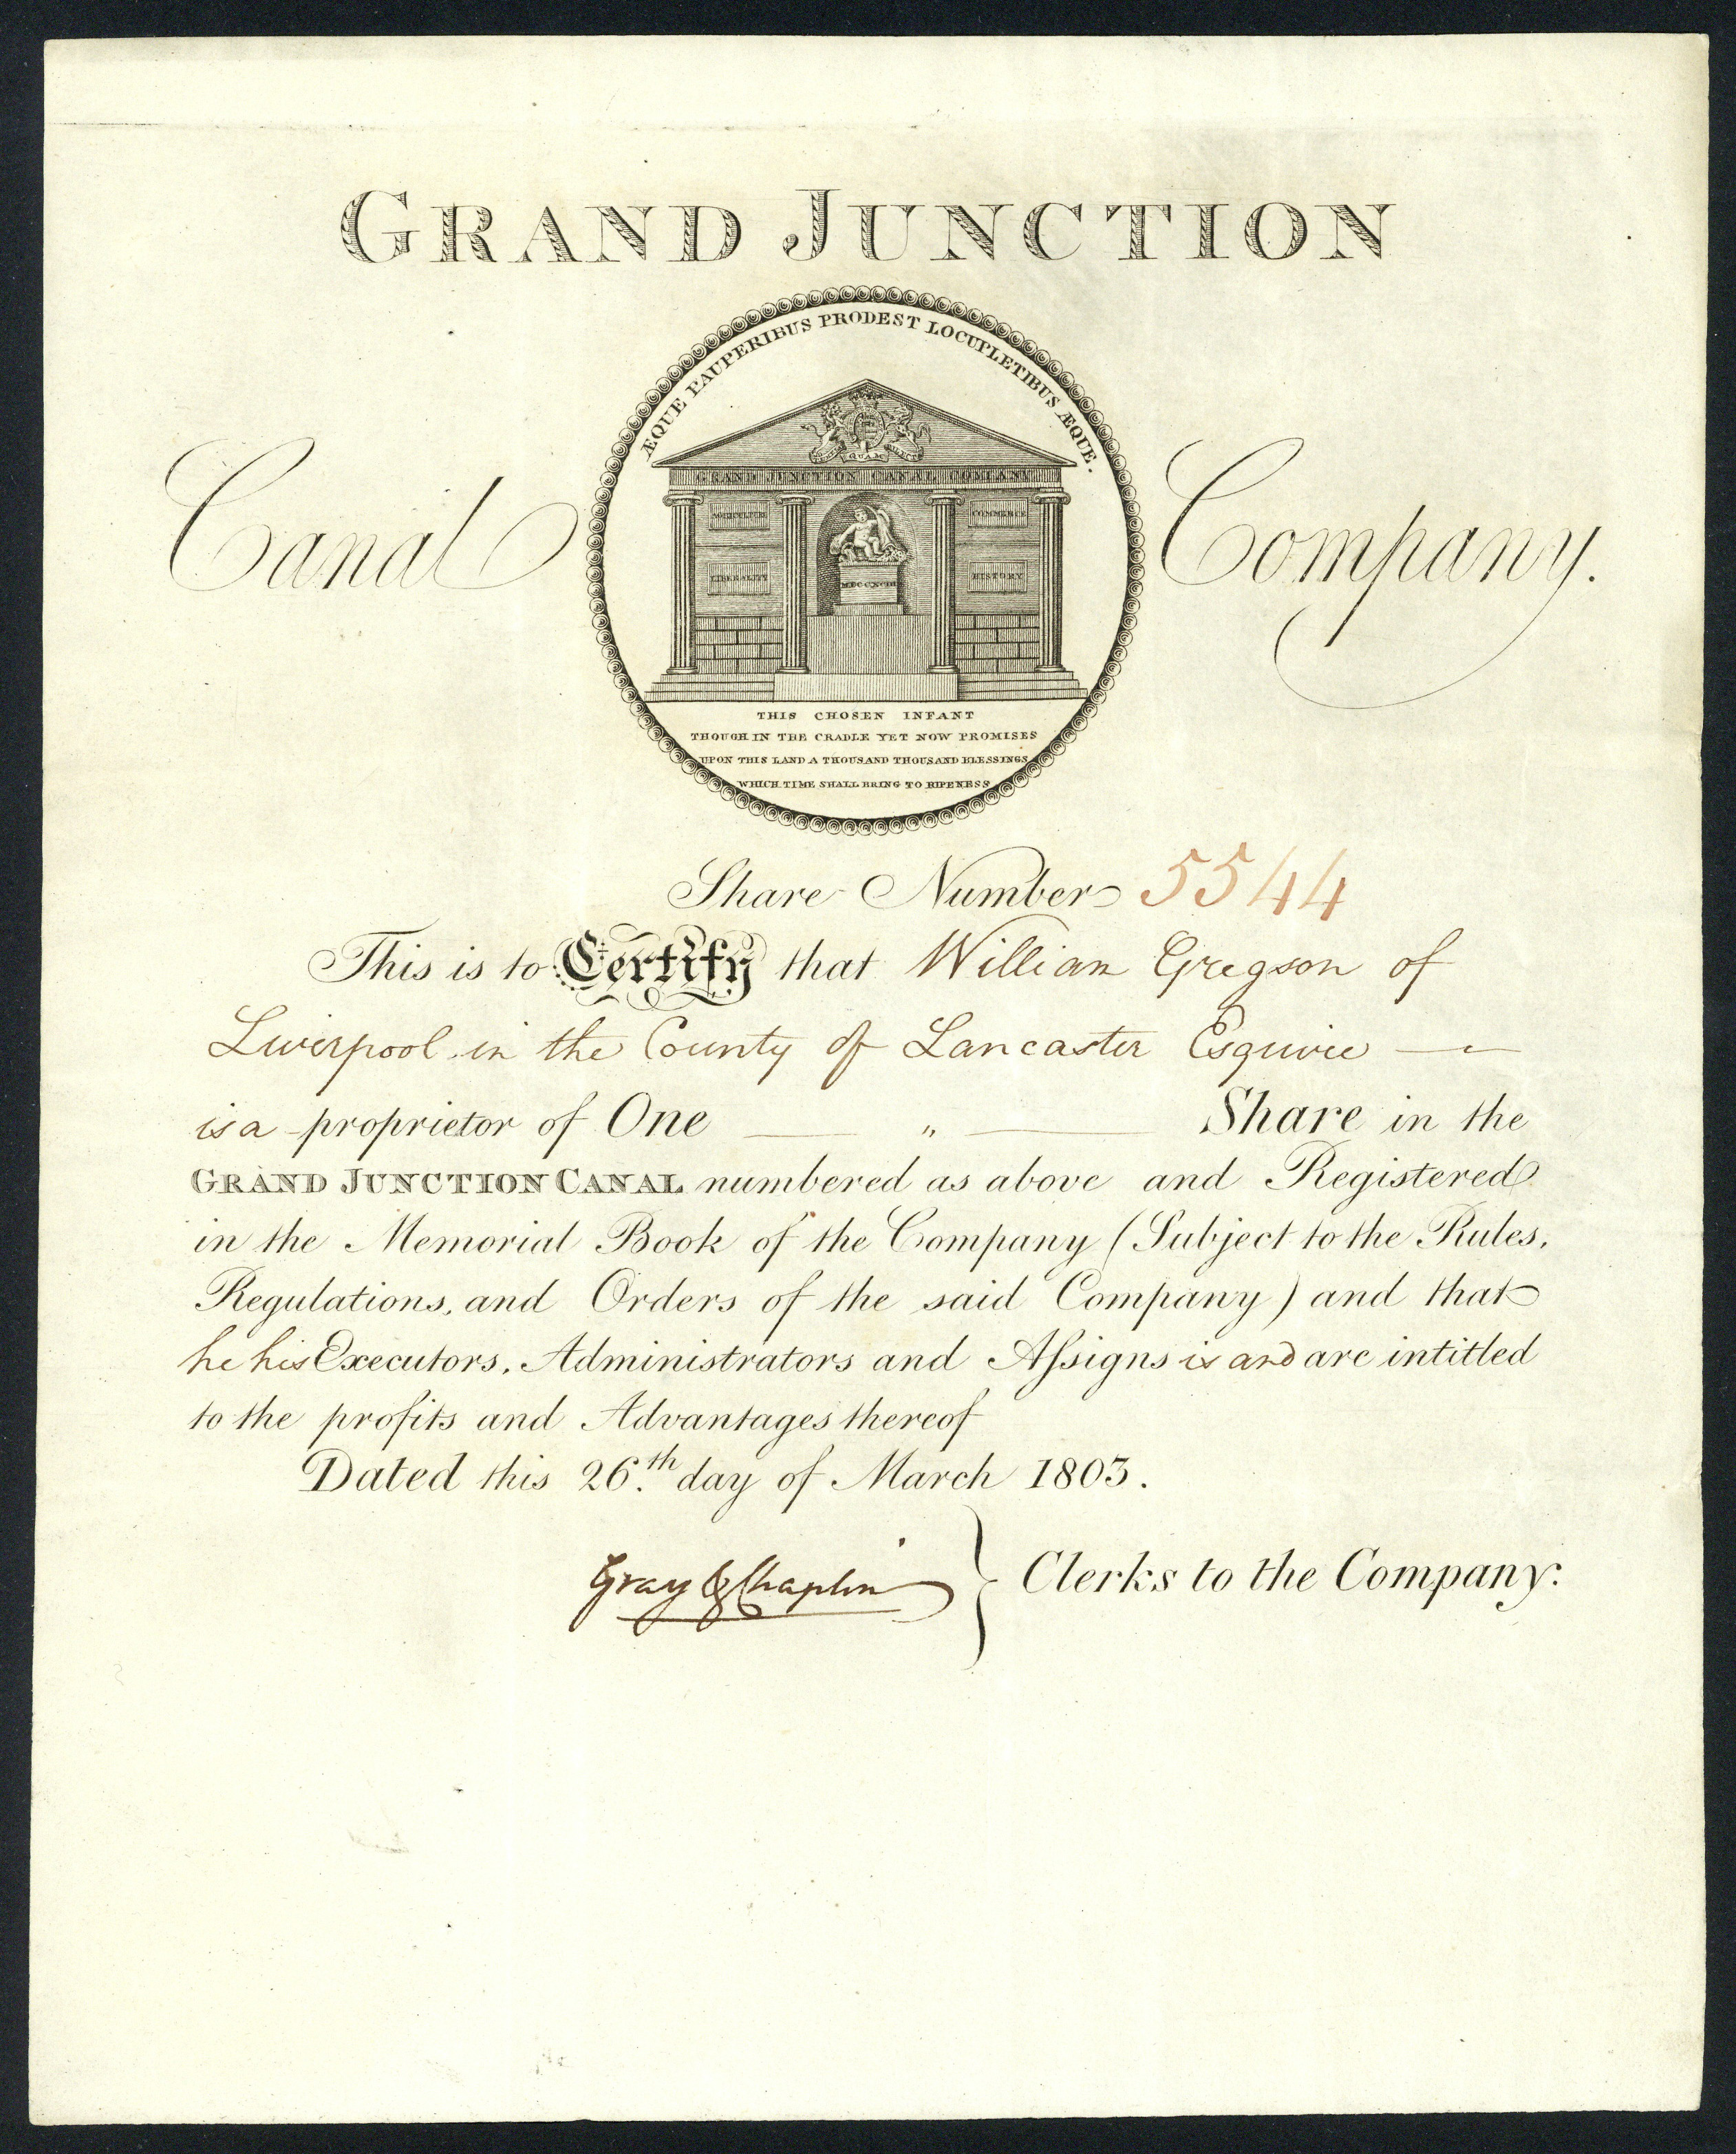 GRAND JUNCTION
ÆQUE PAUPERIBUS PRODEST LOCUPLETIBUS ÆQUE.
Canal Company.
GRAND JUNCTION CANAL COMPANY
AGRICULTURE COMMERCE
LIBERALITY MDCCXCIII HISTORY
THIS CHOSEN INFANT
THOUGH IN THE CRADLE YET NOW PROMISES
UPON THIS LAND A THOUSAND THOUSAND BLESSINGS
WHICH TIME SHALL BRING TO RIPENESS
Share Number 5544
This is to Certify that William Gregson of
Liverpool in the County of Lancaster Esquire —
is a proprietor of One — „ — Share in the
GRAND JUNCTION CANAL numbered as above and Registered
in the Memorial Book of the Company (Subject to the Rules,
Regulations, and Orders of the said Company) and that
he his Executors, Administrators and Aſsigns is and are intitled
to the profits and Advantages thereof
Dated this 26.th day of March 1803.
Gray & Chaplin } Clerks to the Company.